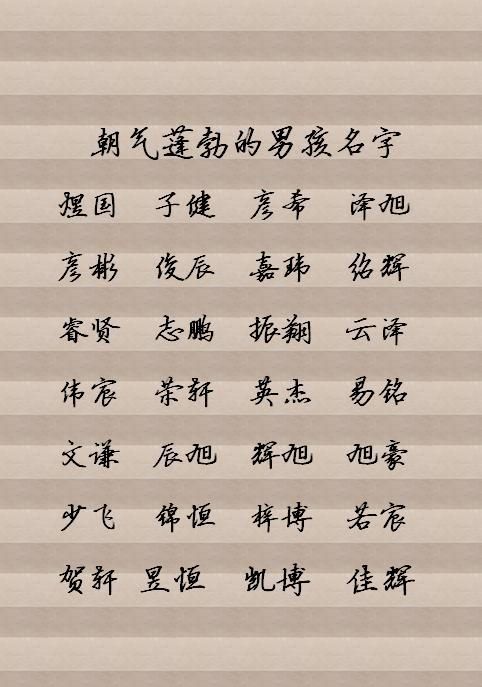 朝气蓬勃的男孩名字
煜国 子健 彦希 泽旭
彦彬 俊辰 嘉玮 绍辉
睿贤 志鹏 振翔 云泽
伟宸 荣轩 英杰 易铭
文谦 辰旭 辉旭 旭豪
少飞 锦恒 梓博 若宸
贺轩 昱恒 凯博 佳辉